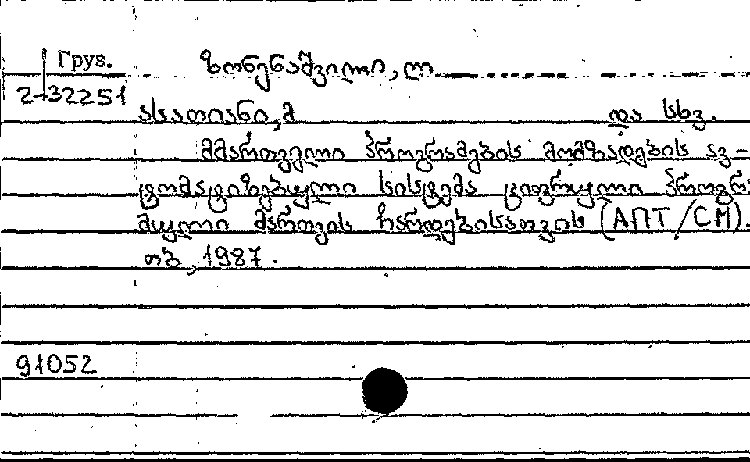 Груз.
ზონენაშვილი, ლ
2-32251
ასათიანი, მ და სხვ.
მმართველი პროგრამების მომზადების ავ-
ტომატიზებული სისტემა ციფრული პროგრა
მული მართვის ჩარხებისათვის (АПТ/СМ).
თბ, 1987.
91052